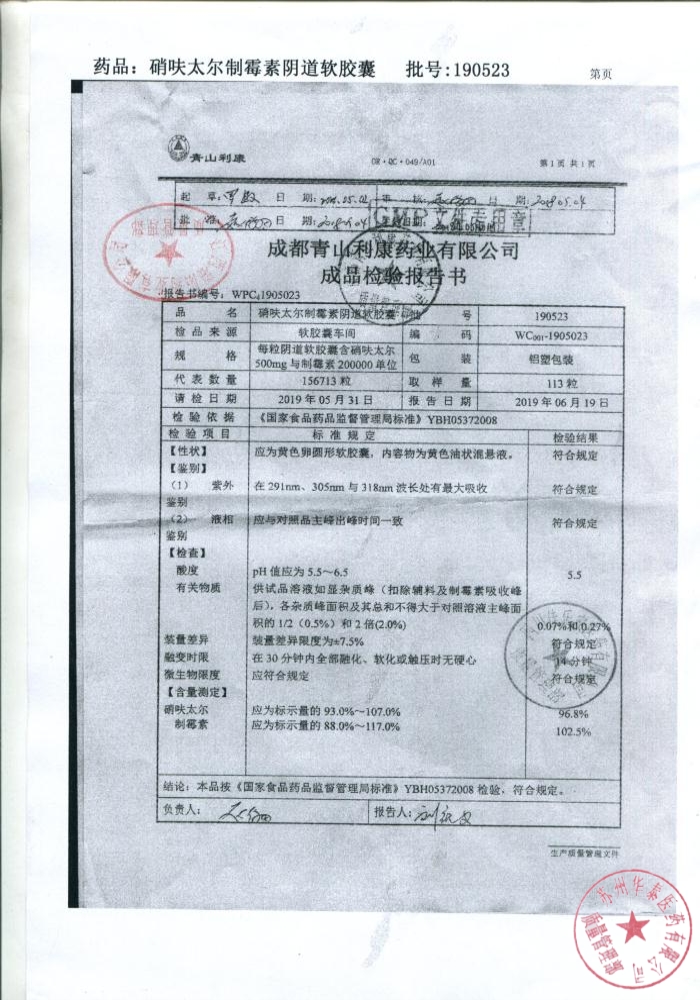 药品：硝呋太尔制霉素阴道软胶囊 批号:190523 第页
青山利康 OR·QC·049/A01 第1页 共1页
起 草: 日 期: 审 核: 日 期: 2019.05.04
批 准: 日 期:
成都青山利康药业有限公司
成品检验报告书
报告书编号：WPC₄1905023
品 名 硝呋太尔制霉素阴道软胶囊 批 号 190523
检品来源 软胶囊车间 编 码 WC₀₀₁-1905023
规 格 每粒阴道软胶囊含硝呋太尔500mg与制霉素200000单位 包 装 铝塑包装
代表数量 156713粒 取 样 量 113粒
请检日期 2019年05月31日 报告日期 2019年06月19日
检验依据 《国家食品药品监督管理局标准》YBH05372008
检验项目 标准规定 检验结果
【性状】 应为黄色卵圆形软胶囊，内容物为黄色油状混悬液。 符合规定
【鉴别】
（1） 紫外鉴别 在291nm、305nm与318nm波长处有最大吸收 符合规定
（2） 液相鉴别 应与对照品主峰出峰时间一致 符合规定
【检查】
酸度 pH值应为5.5～6.5 5.5
有关物质 供试品溶液如显杂质峰（扣除辅料及制霉素吸收峰
后），各杂质峰面积及其总和不得大于对照溶液主峰面
积的1/2（0.5%）和2倍(2.0%) 0.07%和0.27%
装量差异 装量差异限度为±7.5% 符合规定
融变时限 在30分钟内全部融化、软化或触压时无硬心 14分钟
微生物限度 应符合规定 符合规定
【含量测定】
硝呋太尔 应为标示量的93.0%～107.0% 96.8%
制霉素 应为标示量的88.0%～117.0% 102.5%
结论：本品按《国家食品药品监督管理局标准》YBH05372008检验，符合规定。
负责人： 报告人：
生产质量管理文件
苏州华泰医药有限公司
质量管理部